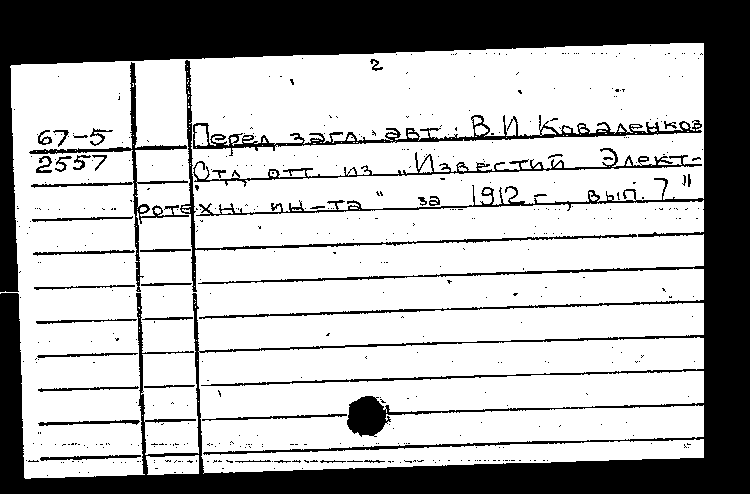 2
67-5 Перед загл. авт.: В.И. Коваленков
2557 Отд. отт. из „Известий Элект-
ротехн. ин-та" за 1912 г., вып. 7."